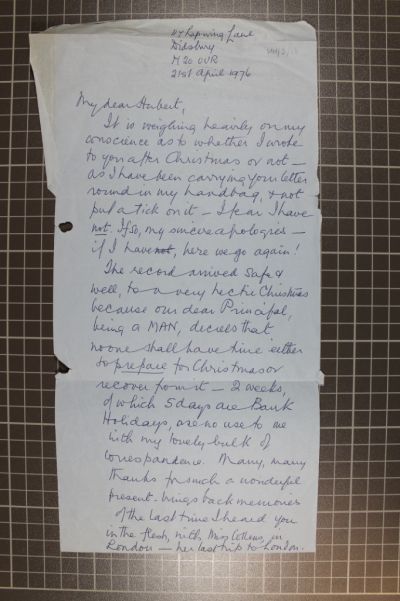 Lapwing Lane
Didsbury
M20 0UR
21st April 1976
My dear Hubert,
It is weighing heavily on my
conscience as to whether I wrote
to you after Christmas or not –
as I have been carrying your letter
round in my handbag, & not
put a tick on it – I fear I have
not. If so, my sincere apologies –
if I have not, here we go again!
The record arrived safe &
well, to a very hectic Christmas
because our dear Principal,
being a MAN, decrees that
no one shall have time either
to prepare for Christmas or
recover from it – 2 weeks,
of which 5 days are Bank
Holidays, are no use to me
with my lovely bulk of
correspondence. Many, many
thanks for such a wonderful
present – brings back memories
of the last time I heard you
in the flesh, with Miss in
London – her last trip to London.